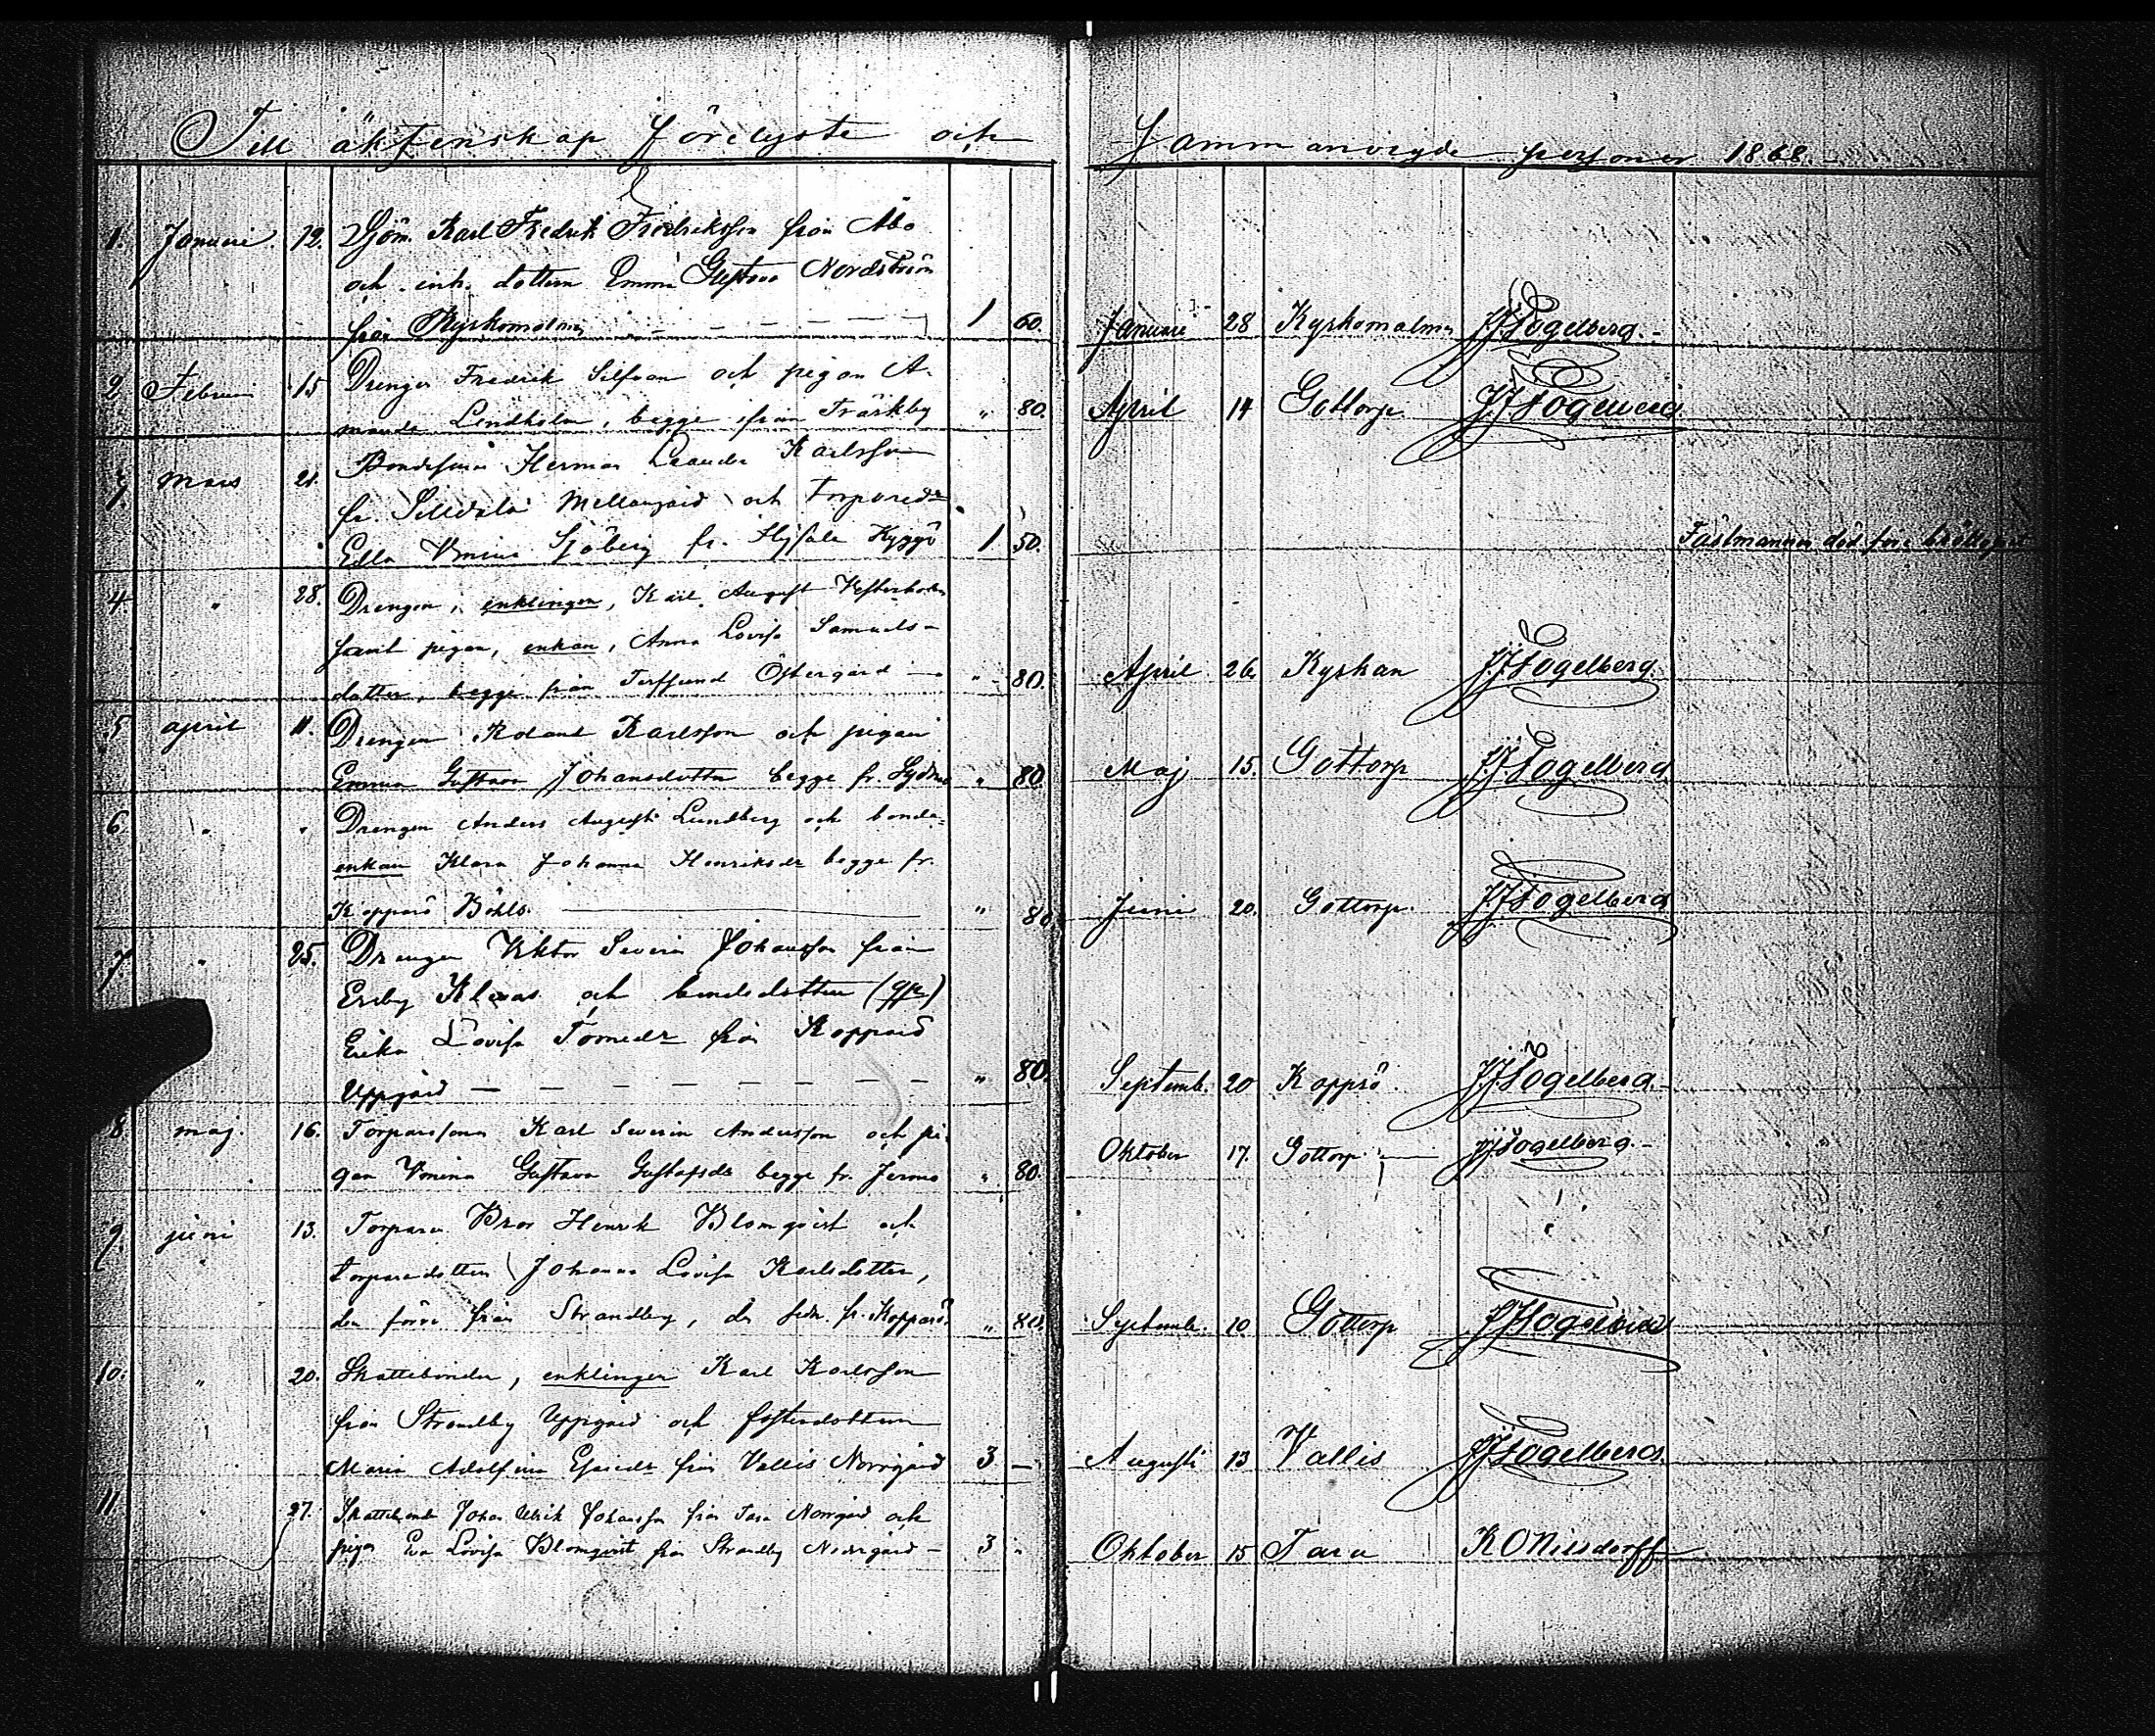 Till äktenskap förelyste och Sammanvigde personer 1868.
1. Januari. 12. Sjöm. Karl Fredrik Fredriksson från Åbo
och inh. dottern Emma Gustava Nordström
från Kyrkomalmen 1 60. Januari 28 Kyrkomalmen JJFogelberg.
2 Februari 15 Drengen Fredrik Silfvan och pigan A-
manda Lindholm, begge från Träskby " 80. April 14 Gottorp JJFogelberg
3. Mars 21. Bondesonen Herman Leander Karlsson
fr. Sildala Mellangård och torpared:r
Edla Vmina Sjöberg fr. Kyggö 1 50. Fästmannen död före bröllopet
4 " 28. Drengen, enklingen, Karl August
samt pigan, enkan, Anna Lovisa Samuels-
dotter, begge från Östergård " 80. April 26. Kyrkan JJFogelberg.
5 april 11. Drengen Roland Karlsson och pigan
Emma Gustava Johansdotter begge fr. " 80. Maj 15. Gottorp JJFogelberg
6. " " Drengen Anders August Lundberg och bonde-
enkan Klara Johanna Henriksdr begge fr.
Kopparö Böhls " 80. Juni 20. Gottorp. JJFogelberg
7 " 25. Drengen Viktor Severin Johansson från
Ersby Klevas och bondedottern
Erika Lovisa Tomedr från Kopparö
Uppgård " 80. Septemb. 20 Kopparö. JJFogelberg.
8 maj. 16. Torparesonen Karl Severin Andersson och pi-
gan Vmina Gustava Gustafsdr begge fr. Jermo " 80. Oktober 17. Gottorp JJFogelberg.
9. juni 13. Torparen Bror Henrik Blomqvist och
torparedottern Johanna Lovisa Karlsdotter,
den förre från Strandby, d. sedn. fr. Kopparö. " 80. Septemb. 10 Gottorp JJFogelberg
10. " 20. Skattebonden, enklingen Karl Karlsson
från Strandby Uppgård och fosterdottern
Maria Adolfina Esaiedr från Vallis Norrgård 3 — Augusti 13 Vallis JJFogelberg.
11 " 27. Skattebonde Johan Ulrik Johansson från Tara Norrgård och
pigan Eva Lovisa Blomqvist från Strandby Nedergård 3 " Oktober 15 Tara KONiisdorff